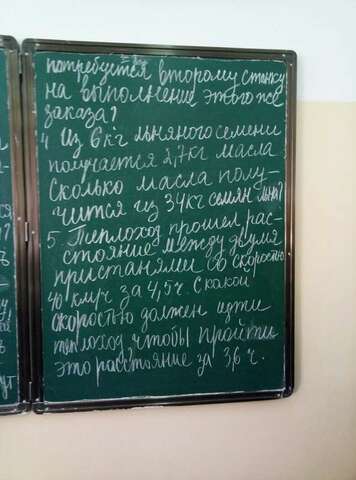 потребуется второму станку
на выполнение этого же
заказа?
4. Из 6 кг льняного семени
получается 2,7кг масла.
Сколько масла полу-
чится из 34кг семян льна?
5. Теплоход прошел рас-
стояние между двумя
пристанями со скоростью
40 км/ч за 4,5 ч. С какой
скоростью должен идти
теплоход чтобы пройти
это расстояние за 3,6 ч.